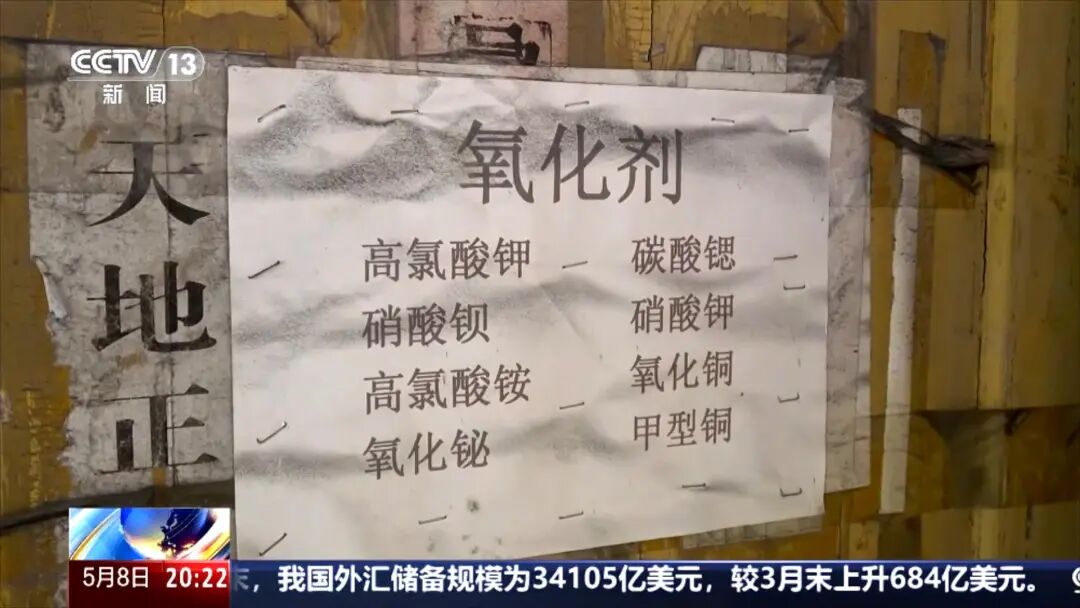 CCTV 13
新闻
天地正
氧化剂
高氯酸钾
硝酸钡
高氯酸铵
氧化铋
碳酸锶
硝酸钾
氧化铜
甲型铜
5月8日 20:22
末，我国外汇储备规模为34105亿美元，较3月末上升684亿美元。